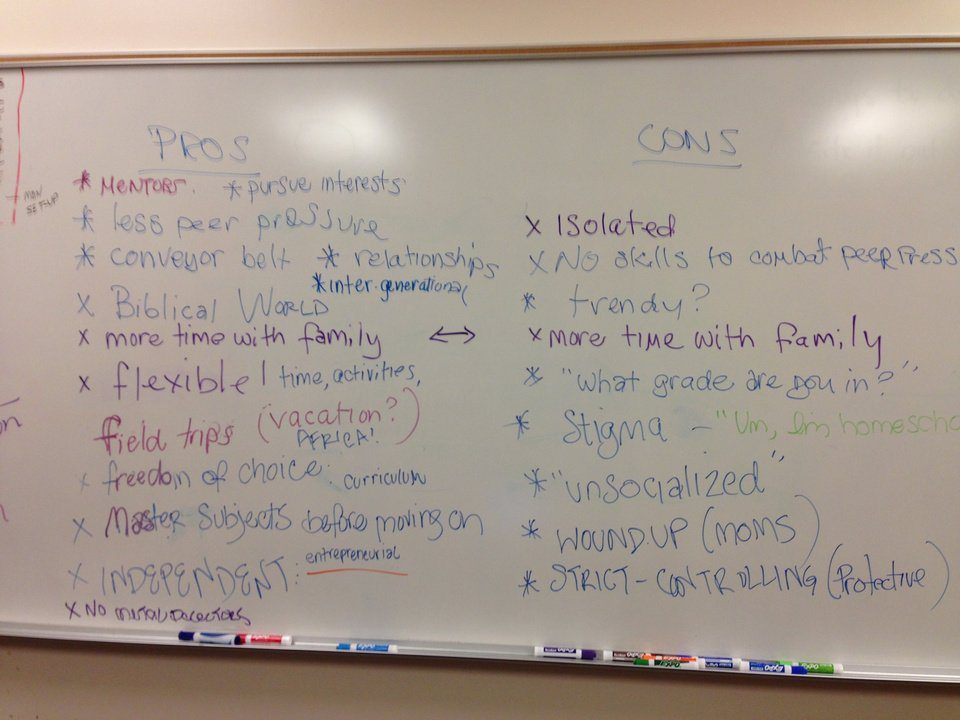 PROS
* MENTORS. * pursue interests
* less peer pressure
* conveyor belt * relationships
* inter-generational
X Biblical World
X more time with family
X flexible! time, activities,
field trips (vacation?)
AFRICA!
X freedom of choice: curriculum
X Master Subjects before moving on
X INDEPENDENT: entrepreneurial
X NO METAL DETECTORS
CONS
X Isolated
X No skills to combat peer press
* trendy?
↔ X more time with family
* "what grade are you in?"
* Stigma - "Um, I'm homescho
* "unsocialized"
* WOUND-UP (MOMS)
* STRICT-CONTROLLING (Protective)
MON
SET-UP
EXPO
EXPO
EXPO
EXPO
EXPO